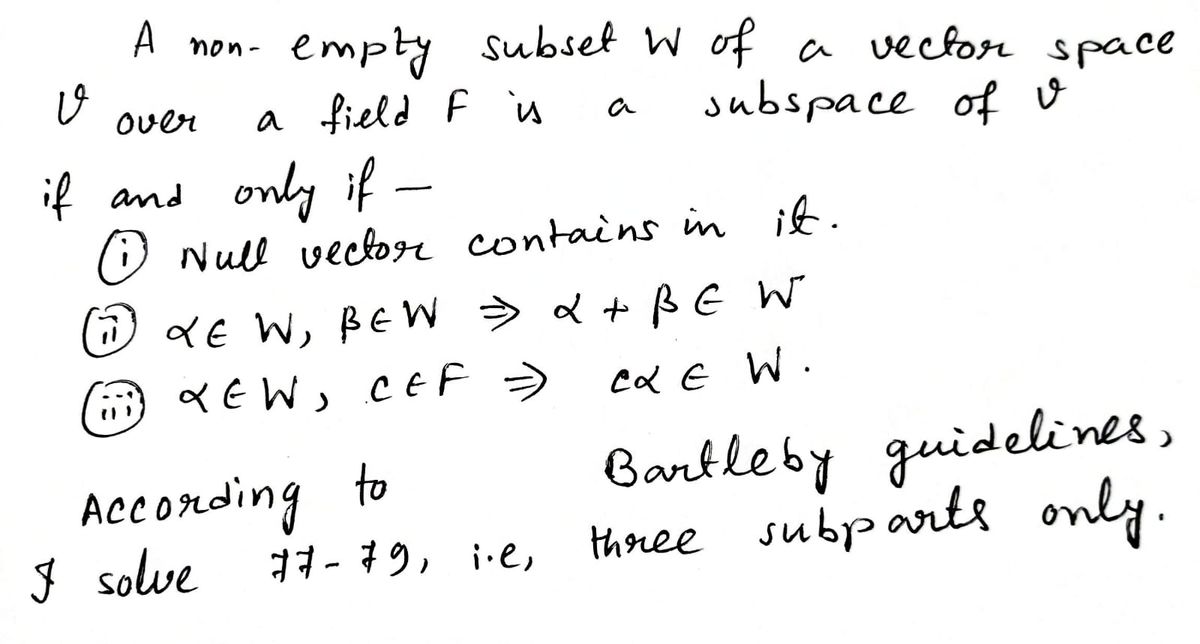 A non-empty subset W of a vector space
V over a field F is a subspace of V
if and only if —
(i) Null vector contains in it.
(ii) α ∈ W, β ∈ W ⇒ α + β ∈ W
(iii) α ∈ W, c ∈ F ⇒ cα ∈ W.
According to Bartleby guidelines,
I solve 77-79, i.e, three subparts only.